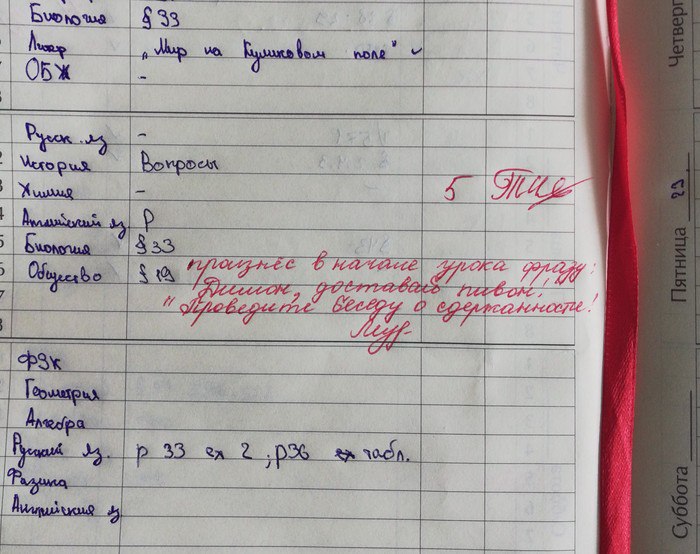 Биология § 33
Литер „Мир на Куликовом поле"
ОБЖ -
Русск. яз -
История Вопросы
Химия - 5
Английский яз P
Биология § 33
Общество § 19 произнёс в начале урока фразу:
"Димон, доставай пивон!"
Проведите беседу о сдержанности!
ФЗК
Геометрия
Алгебра
Русский яз. р 33 ех 2 ; р36 ех табл.
Физика
Английския яз
Четверг
Пятница 29
Суббота